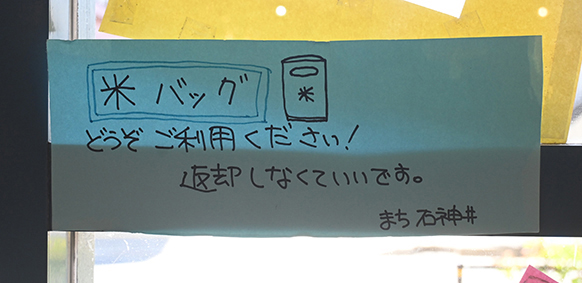 米 バッグ
米
どうぞ ご利用ください!
返却しなくていいです。
まち 石神井